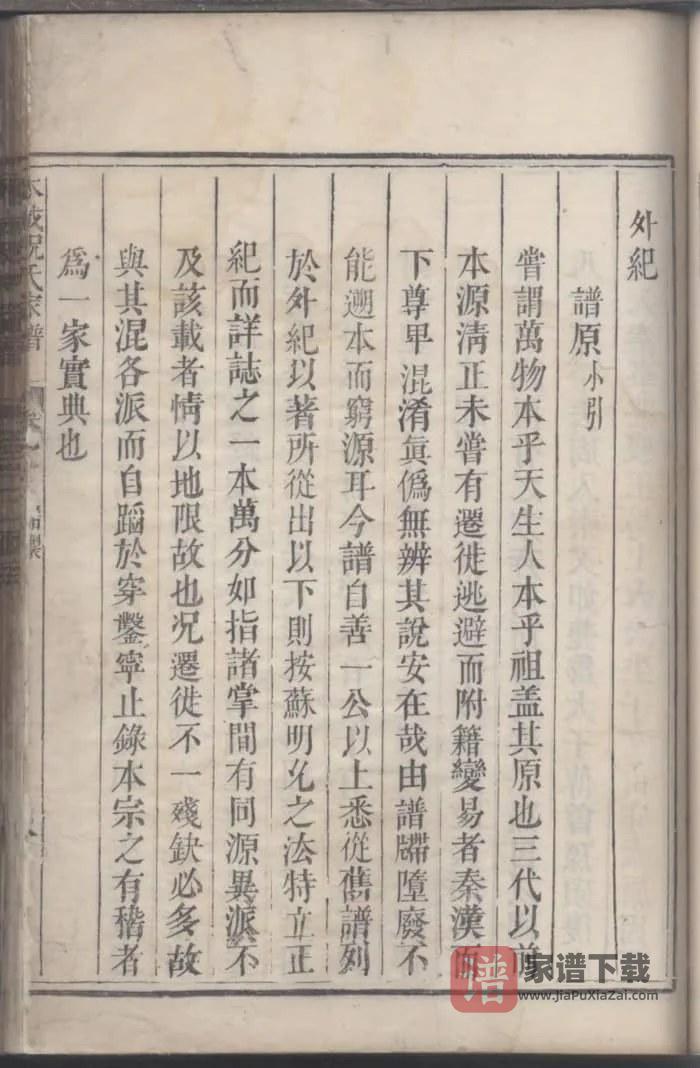 外紀
譜原小引
嘗謂萬物本乎天生人本乎祖盖其原也三代以前
本源淸正未嘗有遷徙逃避而附籍變易者秦漢而
下尊卑混淆眞僞無辨其說安在哉由譜牒墮廢不
能遡本而窮源耳今譜自善一公以上悉從舊譜列
於外紀以著所從出以下則按蘇明允之法特立正
紀而詳誌之一本萬分如指諸掌間有同源異派不
及該載者情以地限故也况遷徙不一殘缺必多故
與其混各派而自蹈於穿鑿寧止錄本宗之有稽者
爲一家實典也
祝氏家譜
家谱下载
www.jiaPuXiazai.com
谱